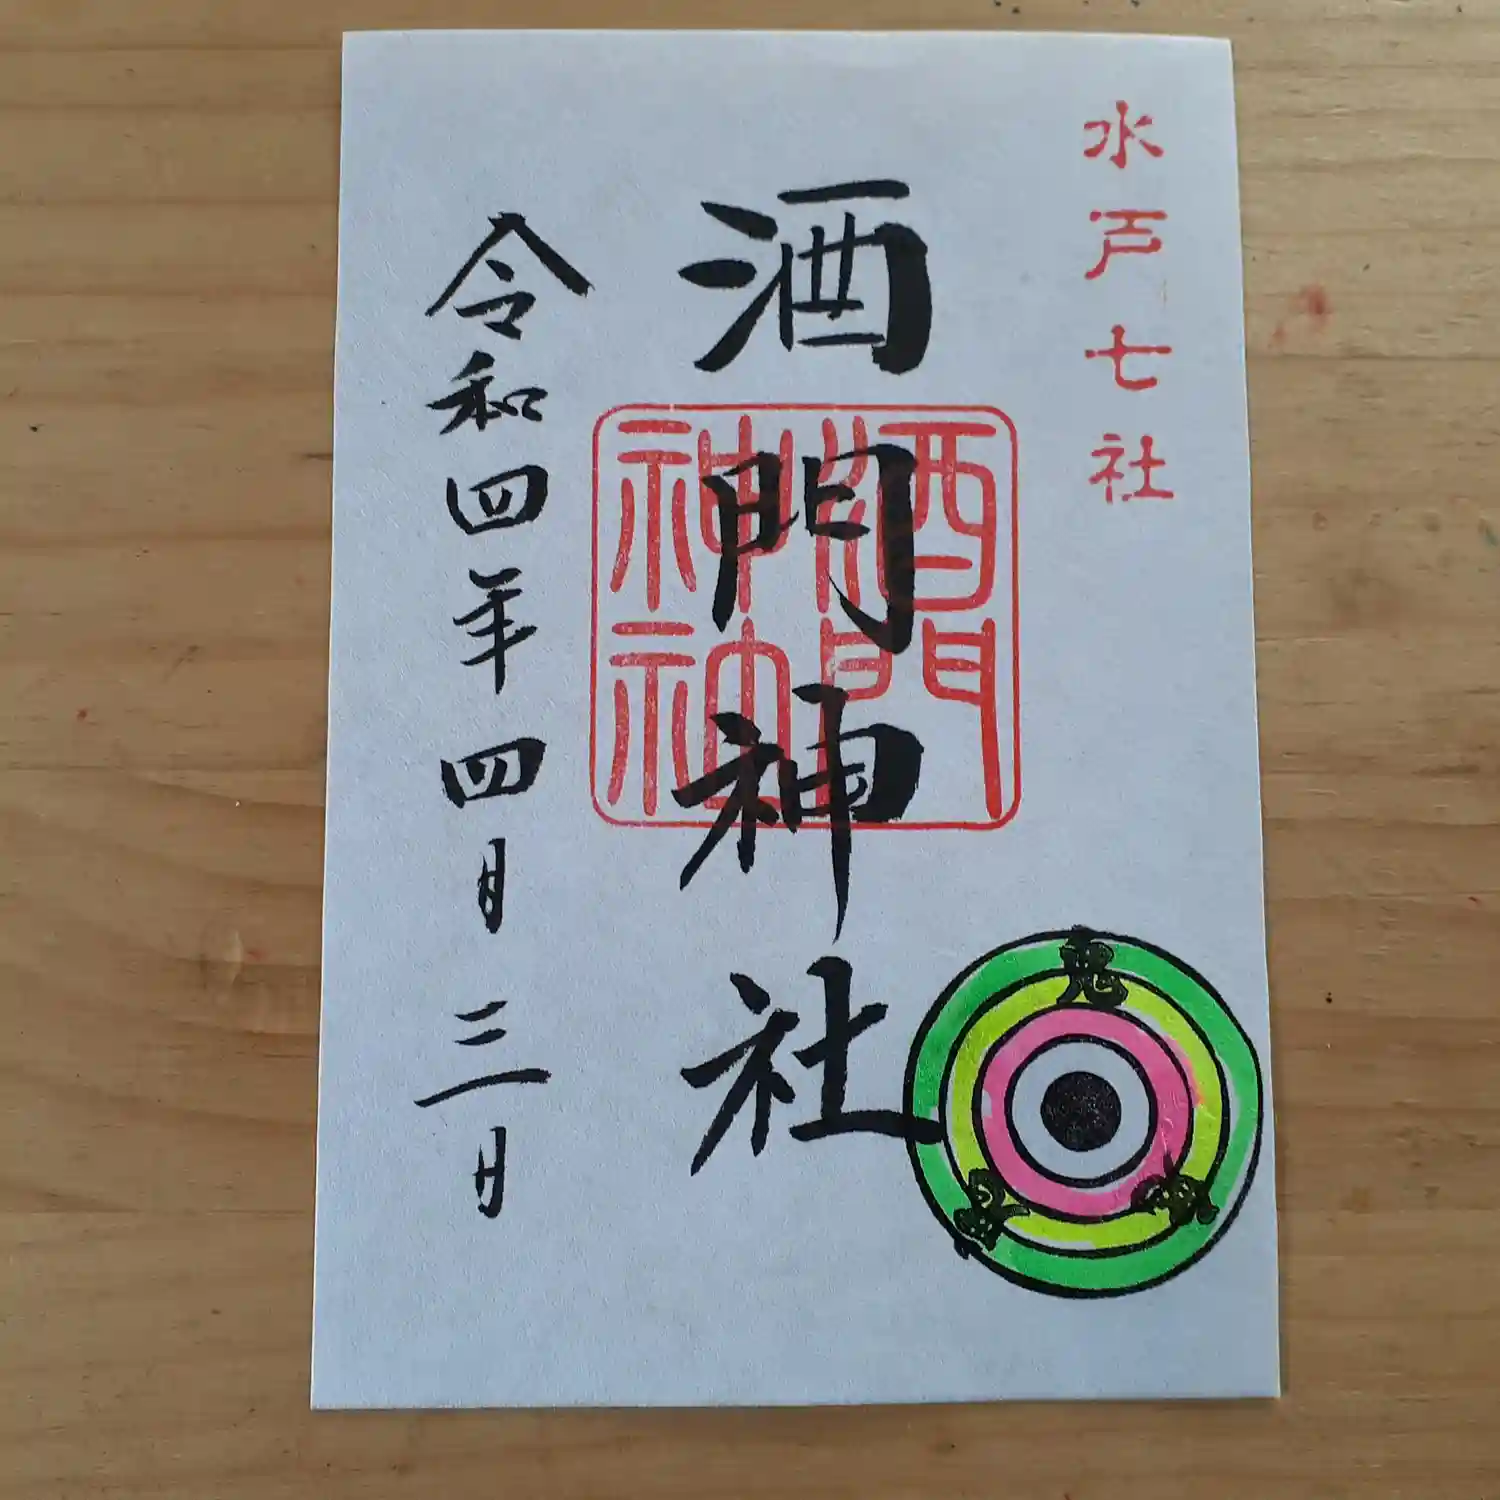 水戸七社
酒門神社
酒門
神社
令和四年四月三日
鬼
鬼
鬼